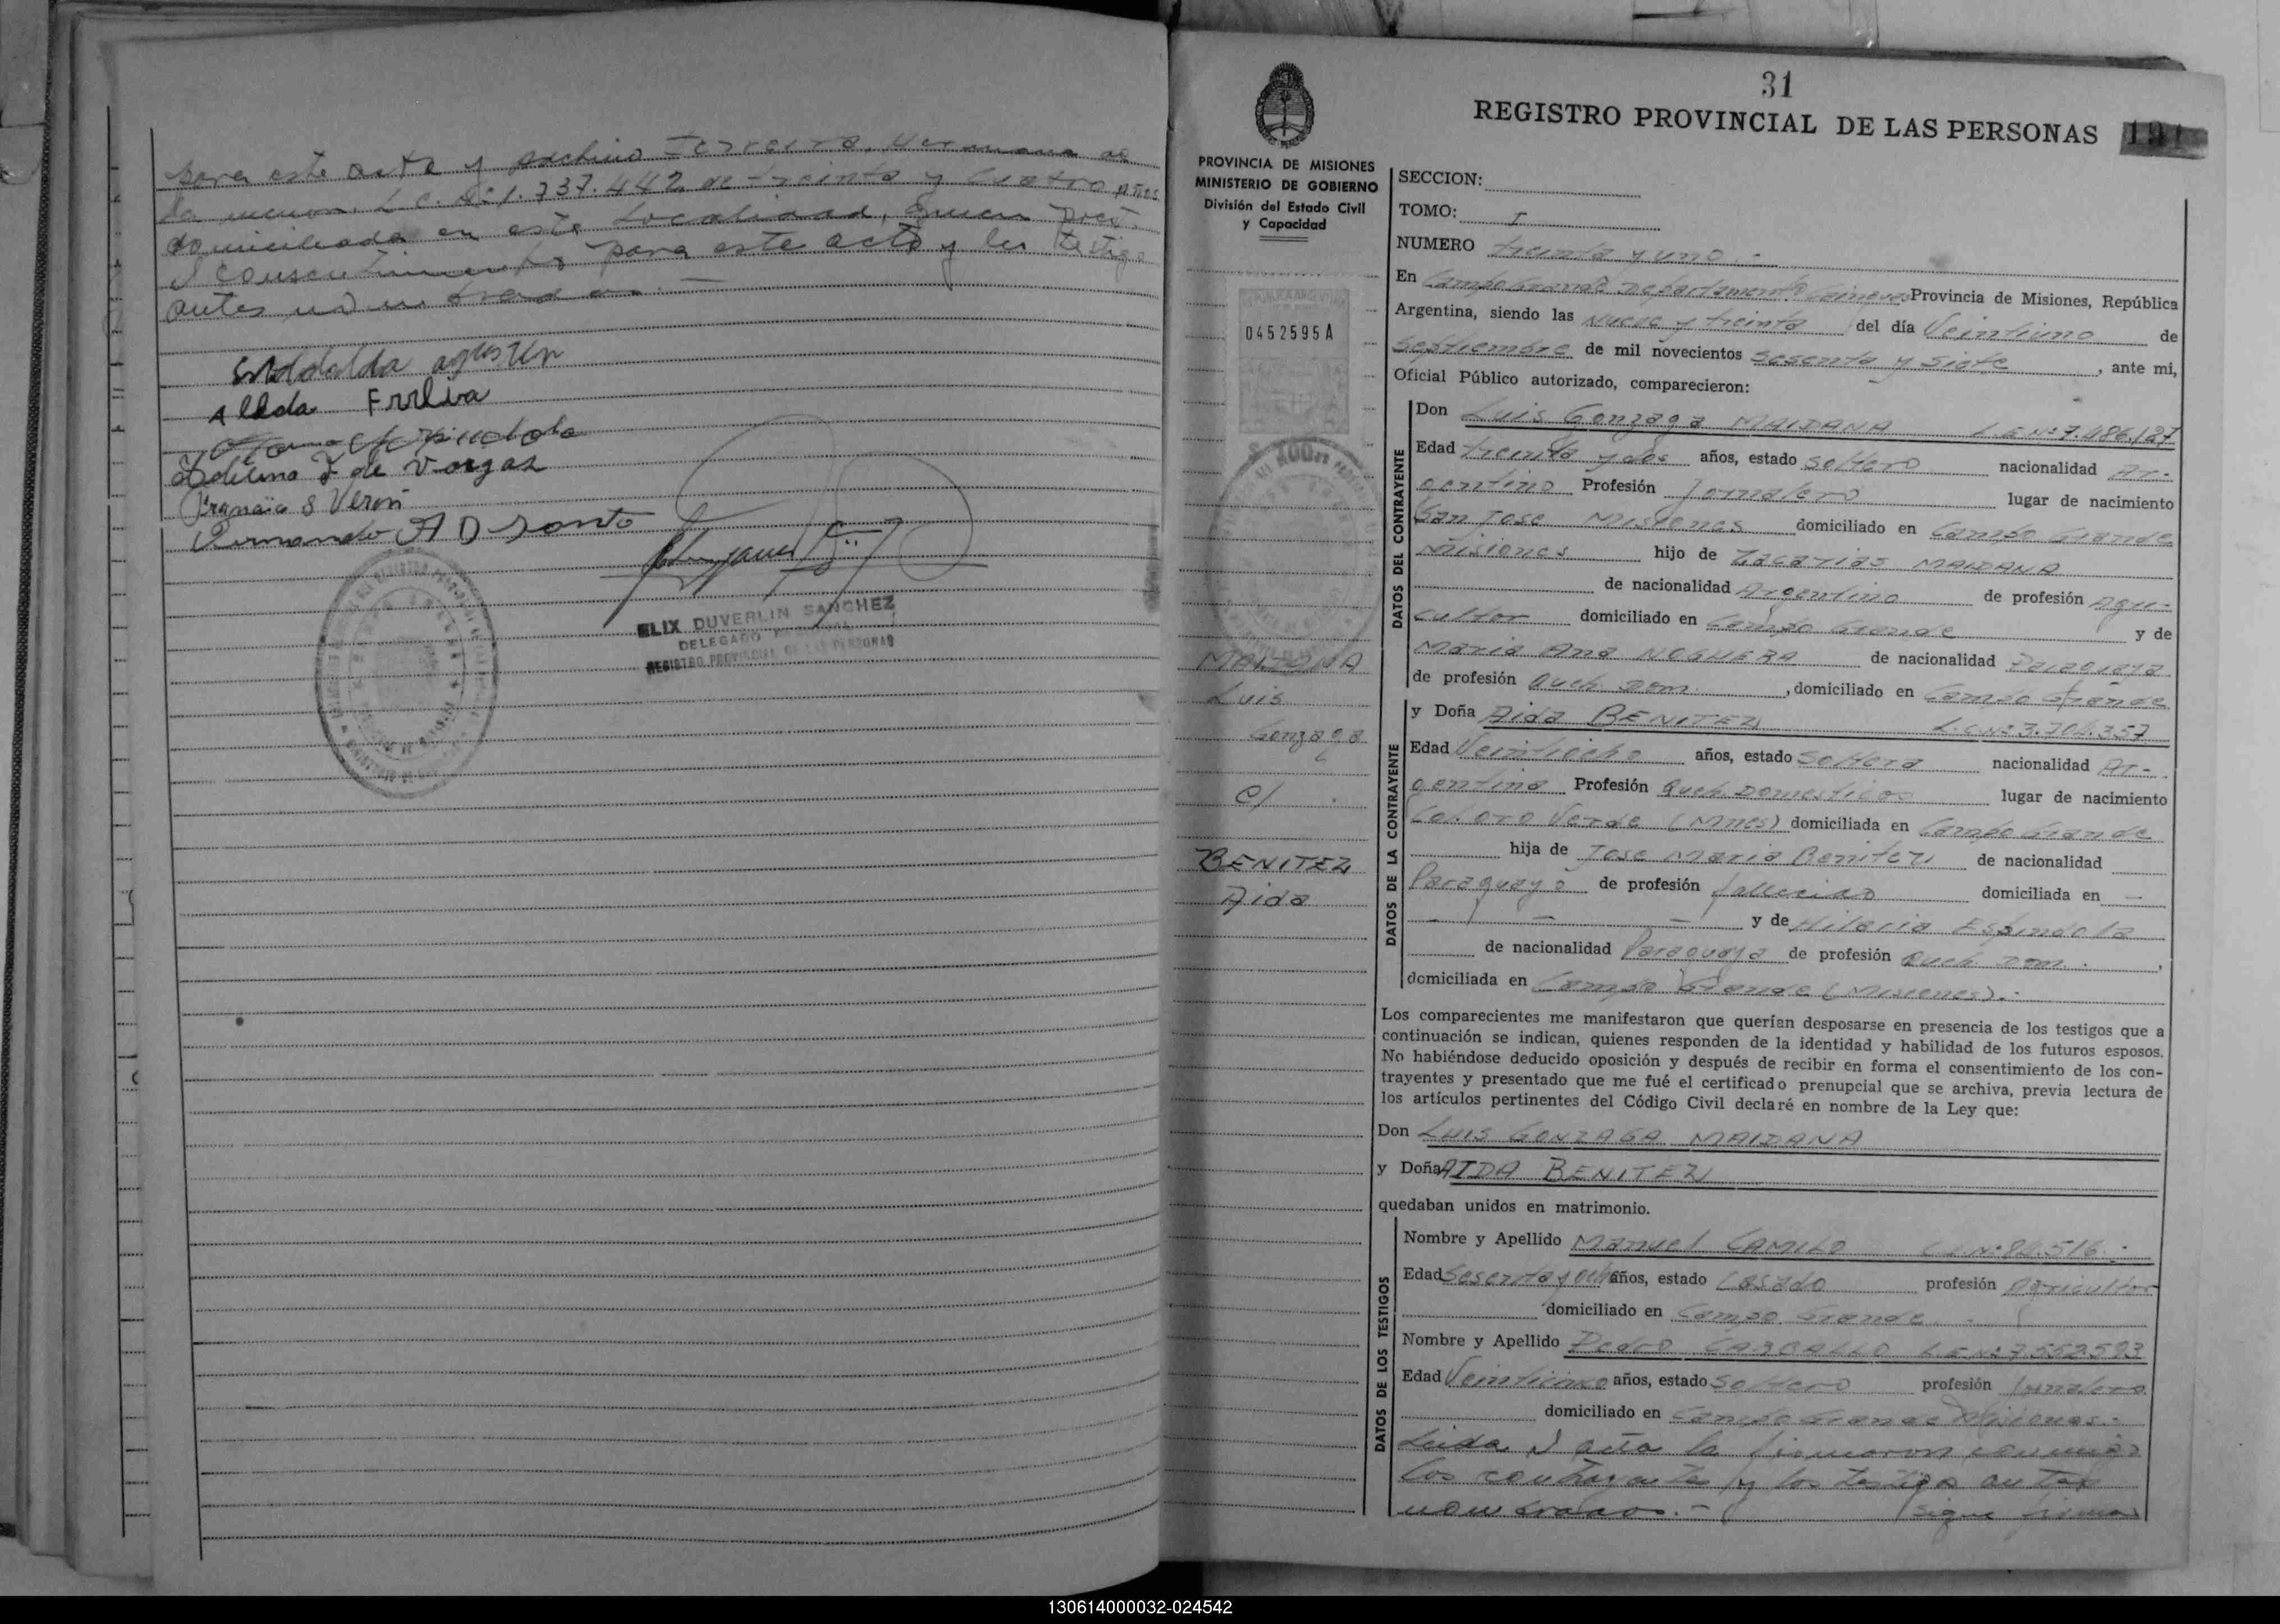 para este acto y
la menor, L.C. Nº 1.737.442 de treinta y cuatro años
domiciliada en esta Localidad, quien
el consentimiento para este acto y los testigos
antes nombrados.-
agustin
Espindola
Idelina F de Vargas
S Veron
ELIX DUVERLIN SANCHEZ
DELEGADO
REGISTRO PROVINCIAL DE LAS PERSONAS
31
REGISTRO PROVINCIAL DE LAS PERSONAS 191
PROVINCIA DE MISIONES
MINISTERIO DE GOBIERNO
División del Estado Civil
y Capacidad
REPUBLICA ARGENTINA
0452595A
MAIDANA
Luis
Gonzaga
c/
BENITEZ
Aida
SECCION:
TOMO: I
NUMERO treinta y uno.-
En Campo Grande Departamento Cainguas Provincia de Misiones, República
Argentina, siendo las nueve y treinta del día Veintiuno de
Septiembre de mil novecientos sesenta y siete, ante mi,
Oficial Público autorizado, comparecieron:
DATOS DEL CONTRAYENTE
Don Luis Gonzaga MAIDANA L.E.Nº 7.486.127
Edad treinta y dos años, estado soltero nacionalidad Ar-
gentino Profesión Jornalero lugar de nacimiento
San Jose Misiones domiciliado en Campo Grande
Misiones hijo de Zacarias MAIDANA
de nacionalidad Argentino de profesión Agri-
cultor domiciliado en Campo Grande y de
Maria Ana NOGUERA de nacionalidad Paraguaya
de profesión Queh. Dom. , domiciliado en Campo Grande
DATOS DE LA CONTRAYENTE
y Doña Aida BENITEZ L.C.Nº 3.704.357
Edad Veintiocho años, estado Soltera nacionalidad Ar-
gentina Profesión Queh. Domesticos lugar de nacimiento
Col. Oro Verde (Mnes) domiciliada en Campo Grande
hija de Jose Maria Benitez de nacionalidad
Paraguayo de profesión fallecido domiciliada en -
- - - y de Hilaria Espindola
de nacionalidad Paraguaya de profesión Queh. Dom. ,
domiciliada en Campo Grande (Misiones).-
Los comparecientes me manifestaron que querían desposarse en presencia de los testigos que a
continuación se indican, quienes responden de la identidad y habilidad de los futuros esposos.
No habiéndose deducido oposición y después de recibir en forma el consentimiento de los con-
trayentes y presentado que me fué el certificado prenupcial que se archiva, previa lectura de
los artículos pertinentes del Código Civil declaré en nombre de la Ley que:
Don LUIS GONZAGA MAIDANA
y Doña AIDA BENITEZ
quedaban unidos en matrimonio.
DATOS DE LOS TESTIGOS
Nombre y Apellido Manuel CAMILO Nº 84.516.-
Edad Sesenta y ocho años, estado Casado profesión Agricultor
domiciliado en Campo Grande.
Nombre y Apellido Pedro CARBALLO L.E.Nº 7.552.593
Edad Veinticinco años, estado Soltero profesión Jornalero
domiciliado en Campo Grande Misiones.-
Leida el acta la firmaron conmigo
los contrayentes y los testigos antes
nombrados.- sigue firmas
130614000032-024542